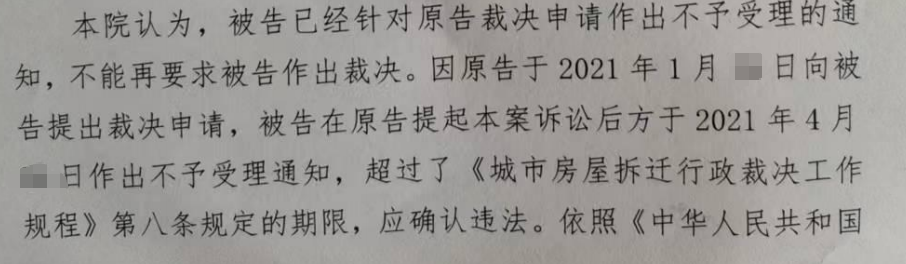 本院认为，被告已经针对原告裁决申请作出不予受理的通
知，不能再要求被告作出裁决。因原告于 2021 年 1 月 日向被
告提出裁决申请，被告在原告提起本案诉讼后方于 2021 年 4 月
日作出不予受理通知，超过了《城市房屋拆迁行政裁决工作
规程》第八条规定的期限，应确认违法。依照《中华人民共和国